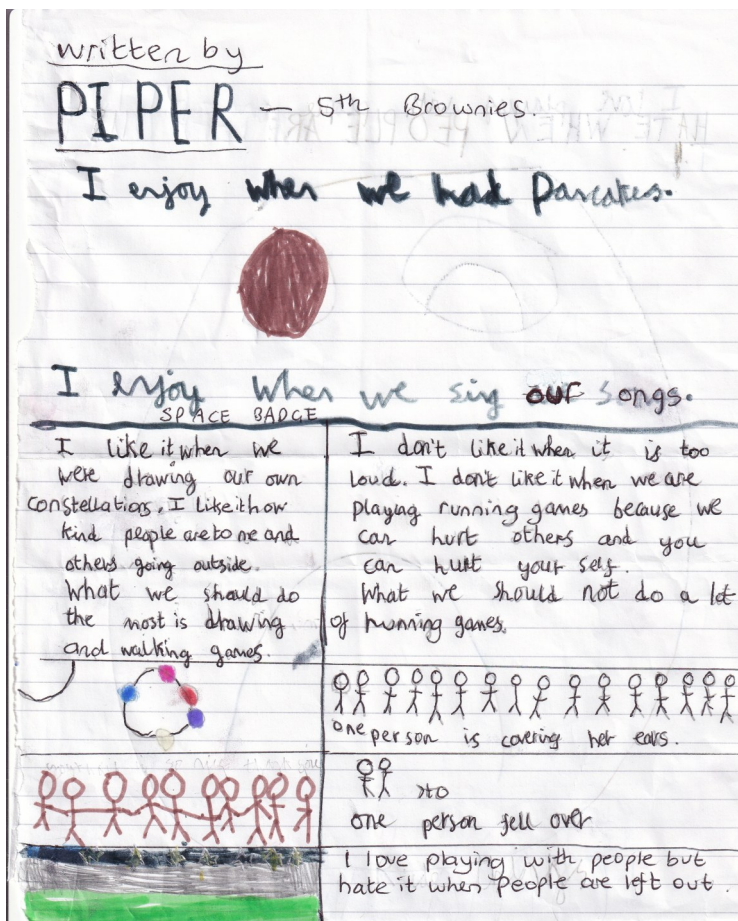 written by
PIPER – 5th Brownies.
I enjoy when we had Pancakes.
I enjoy when we sing our songs.
SPACE BADGE
I like it when we
were drawing our own
constellations. I like it how
kind people are to me and
others going outside.
What we should do
the most is drawing
and walking games.
I don't like it when it is too
loud. I don't like it when we are
playing running games because we
can hurt others and you
can hurt your self.
What we should not do a lot
of running games.
one person is covering her ears.
one person fell over
I love playing with people but
hate it when people are left out.